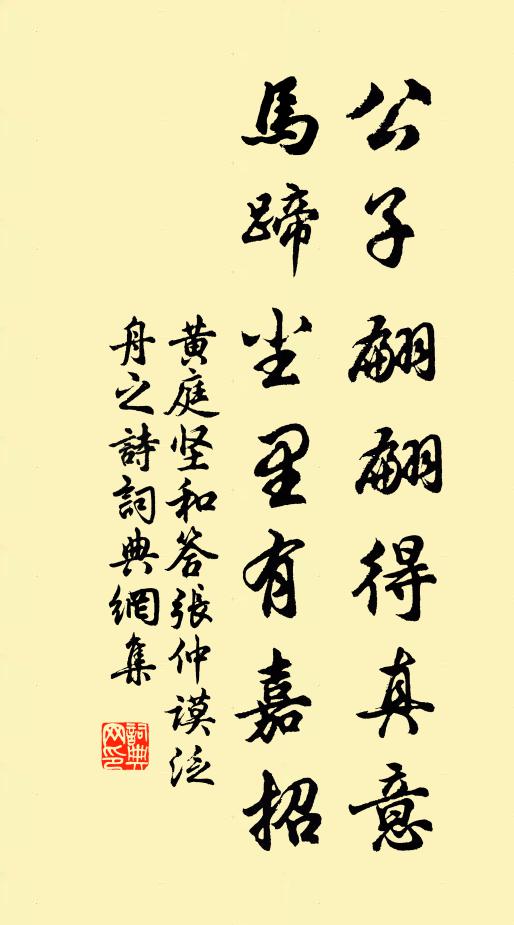 公子翩翩得真意
馬蹄尘里有嘉招
黄庭坚和答張仲謨泛
舟之詩詞典網集
詞典
网印